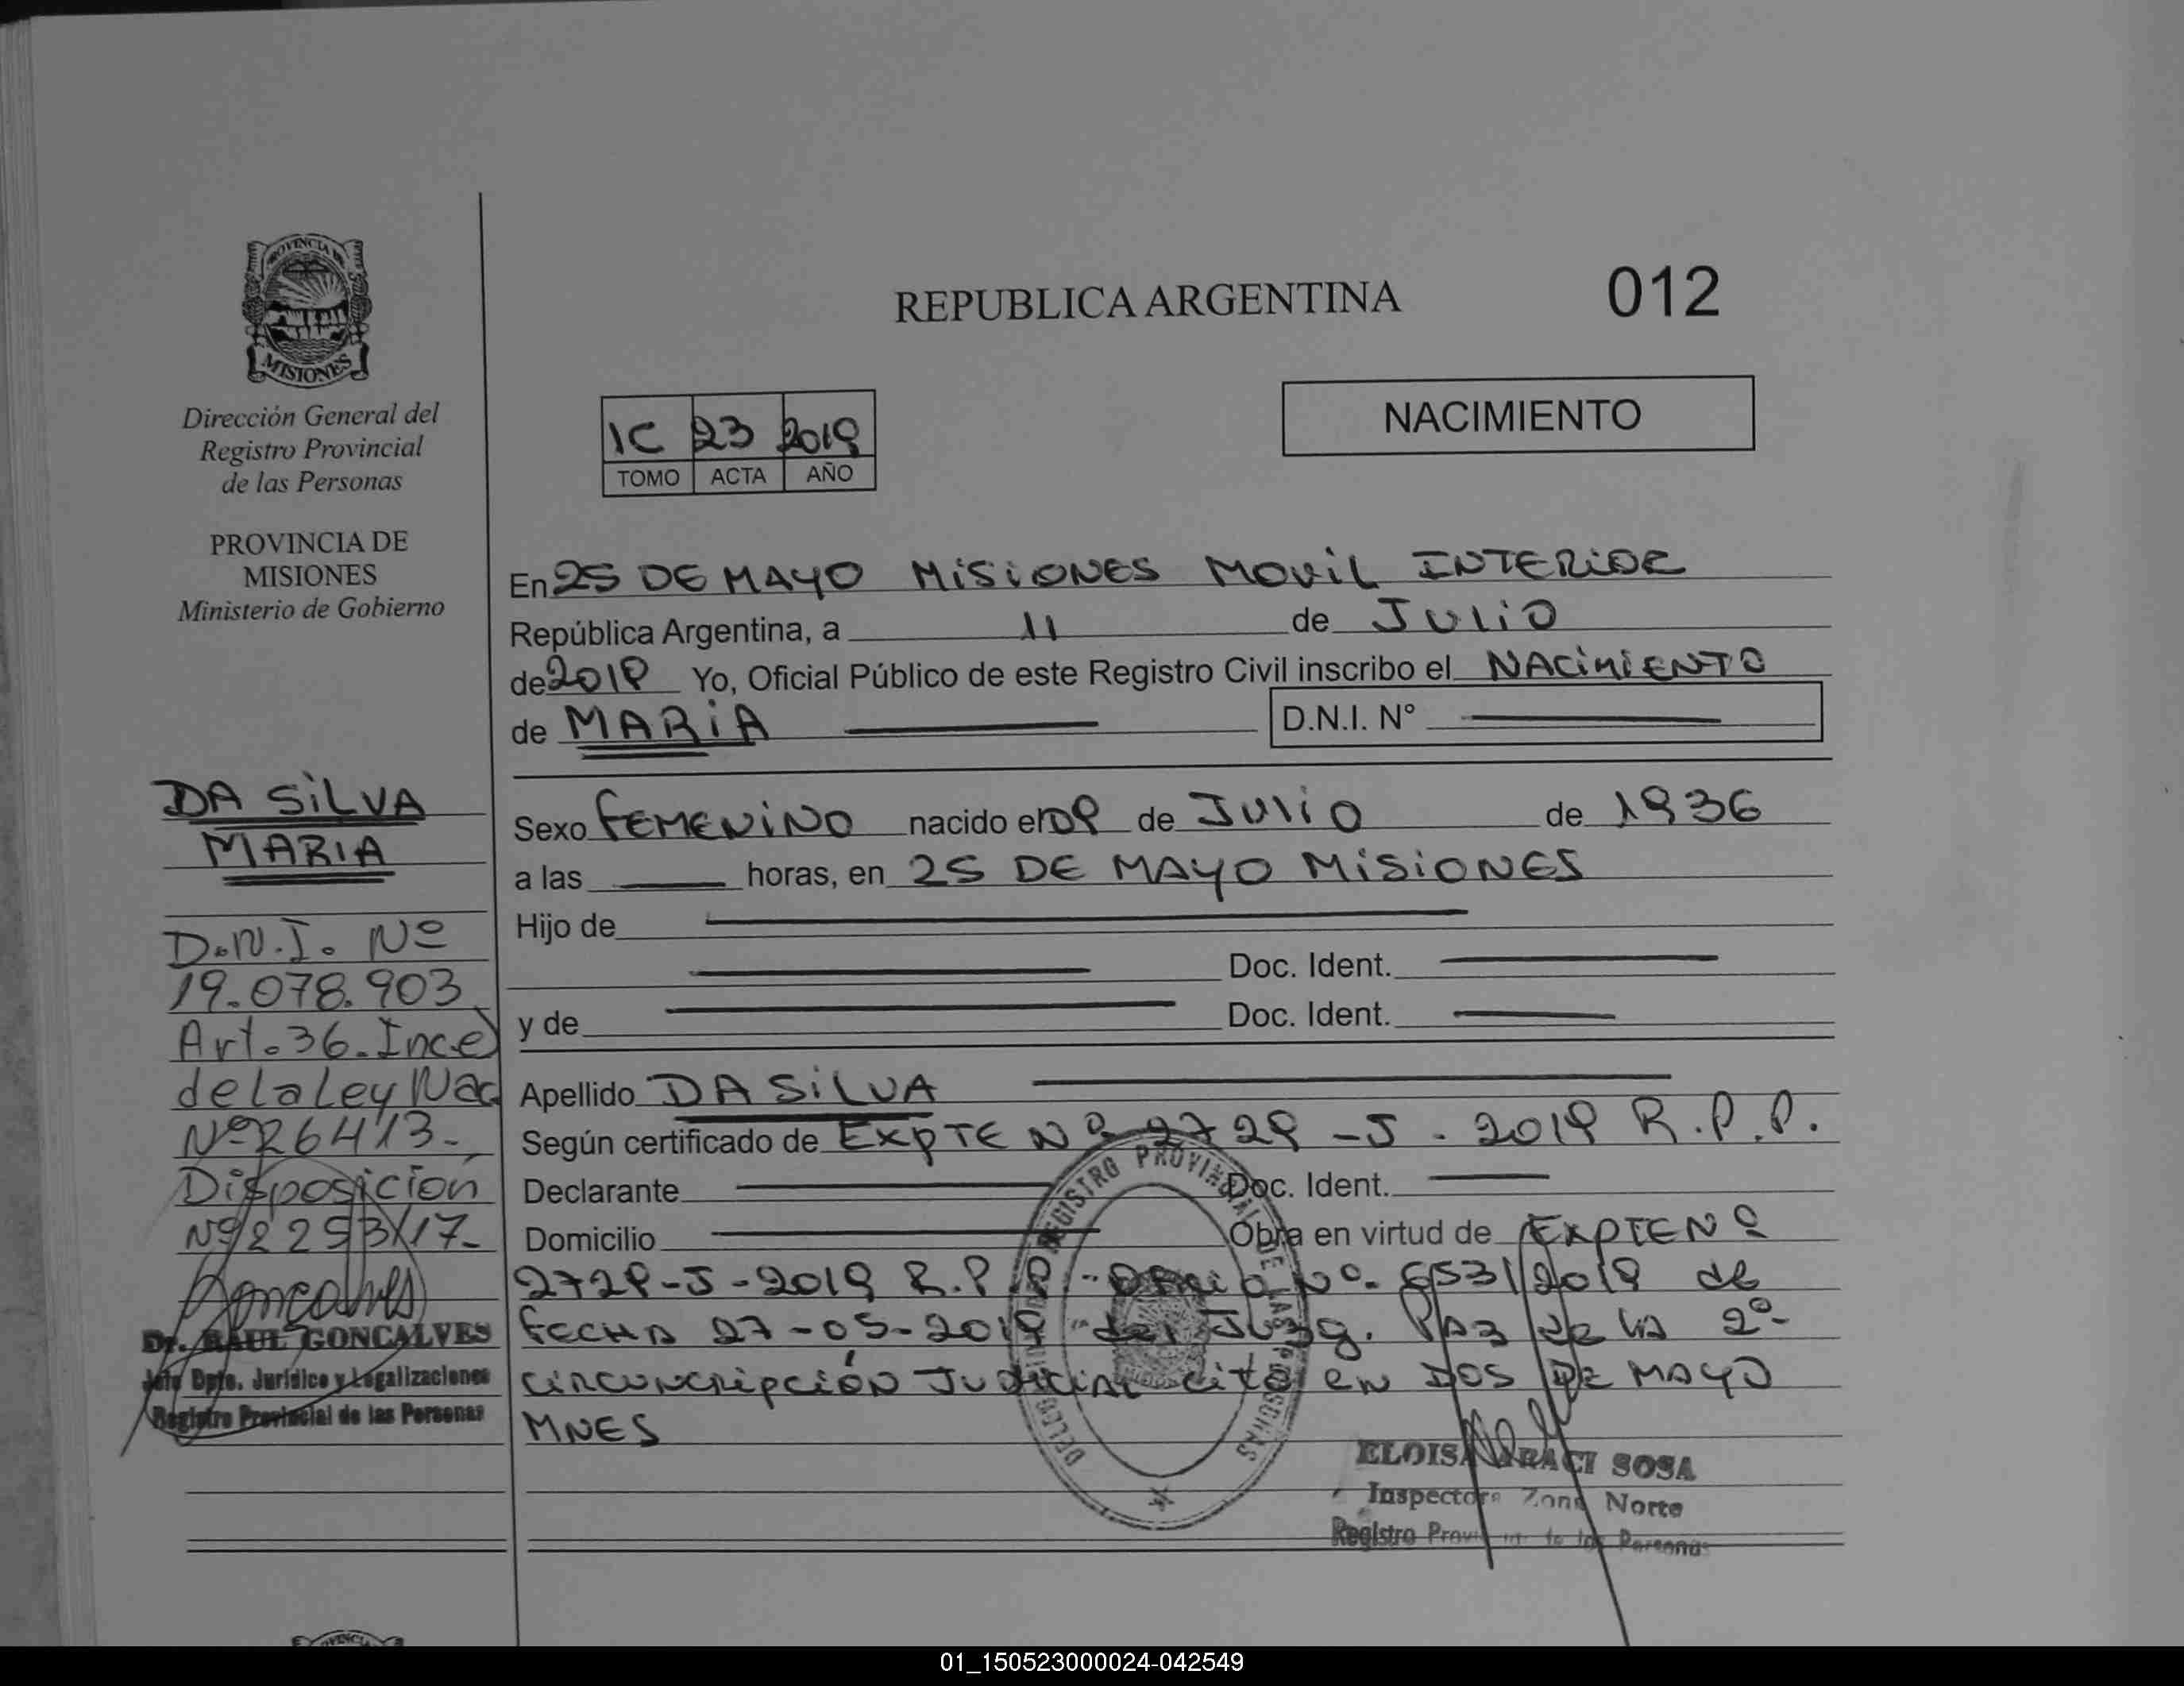 REPUBLICA ARGENTINA
012
MISIONES
Dirección General del
Registro Provincial
de las Personas
PROVINCIA DE
MISIONES
Ministerio de Gobierno
IC 23 2019
TOMO ACTA AÑO
NACIMIENTO
En 25 DE MAYO MISIONES MOVIL INTERIOR
República Argentina, a 11 de JULIO
de 2019 Yo, Oficial Público de este Registro Civil inscribo el NACIMIENTO
de MARIA D.N.I. N°
Sexo FEMENINO nacido el 09 de JULIO de 1936
a las horas, en 25 DE MAYO MISIONES
Hijo de
Doc. Ident.
y de Doc. Ident.
Apellido DA SILVA
Según certificado de EXPTE Nº 2729-J-2019 R.P.P.
Declarante Doc. Ident.
Domicilio Obra en virtud de EXPTE Nº
2729-J-2019 R.P.P - OFICIO Nº. 6531/2019 de
FECHA 27-05-2019 del Juzg. PAZ DE LA 2º-
CIRCUNCRIPCIÓN JUDICIAL cito en DOS DE MAYO
MNES
DA SILVA
MARIA
D.N.I. Nº
19.078.903
Art.36.Inc e)
de la Ley Nac
Nº 26413-
Disposición
Nº 2293/17-
Dr. RAUL GONCALVES
Jefe Dpto. Jurídico y Legalizaciones
Registro Provincial de las Personas
REGISTRO PROVINCIAL DE LAS PERSONAS
ELOISA ARACI SOSA
Inspectora Zona Norte
Registro Provincial de las Personas
01_150523000024-042549